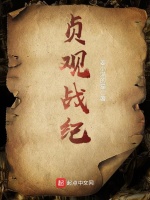 贞观战纪
起点中文网